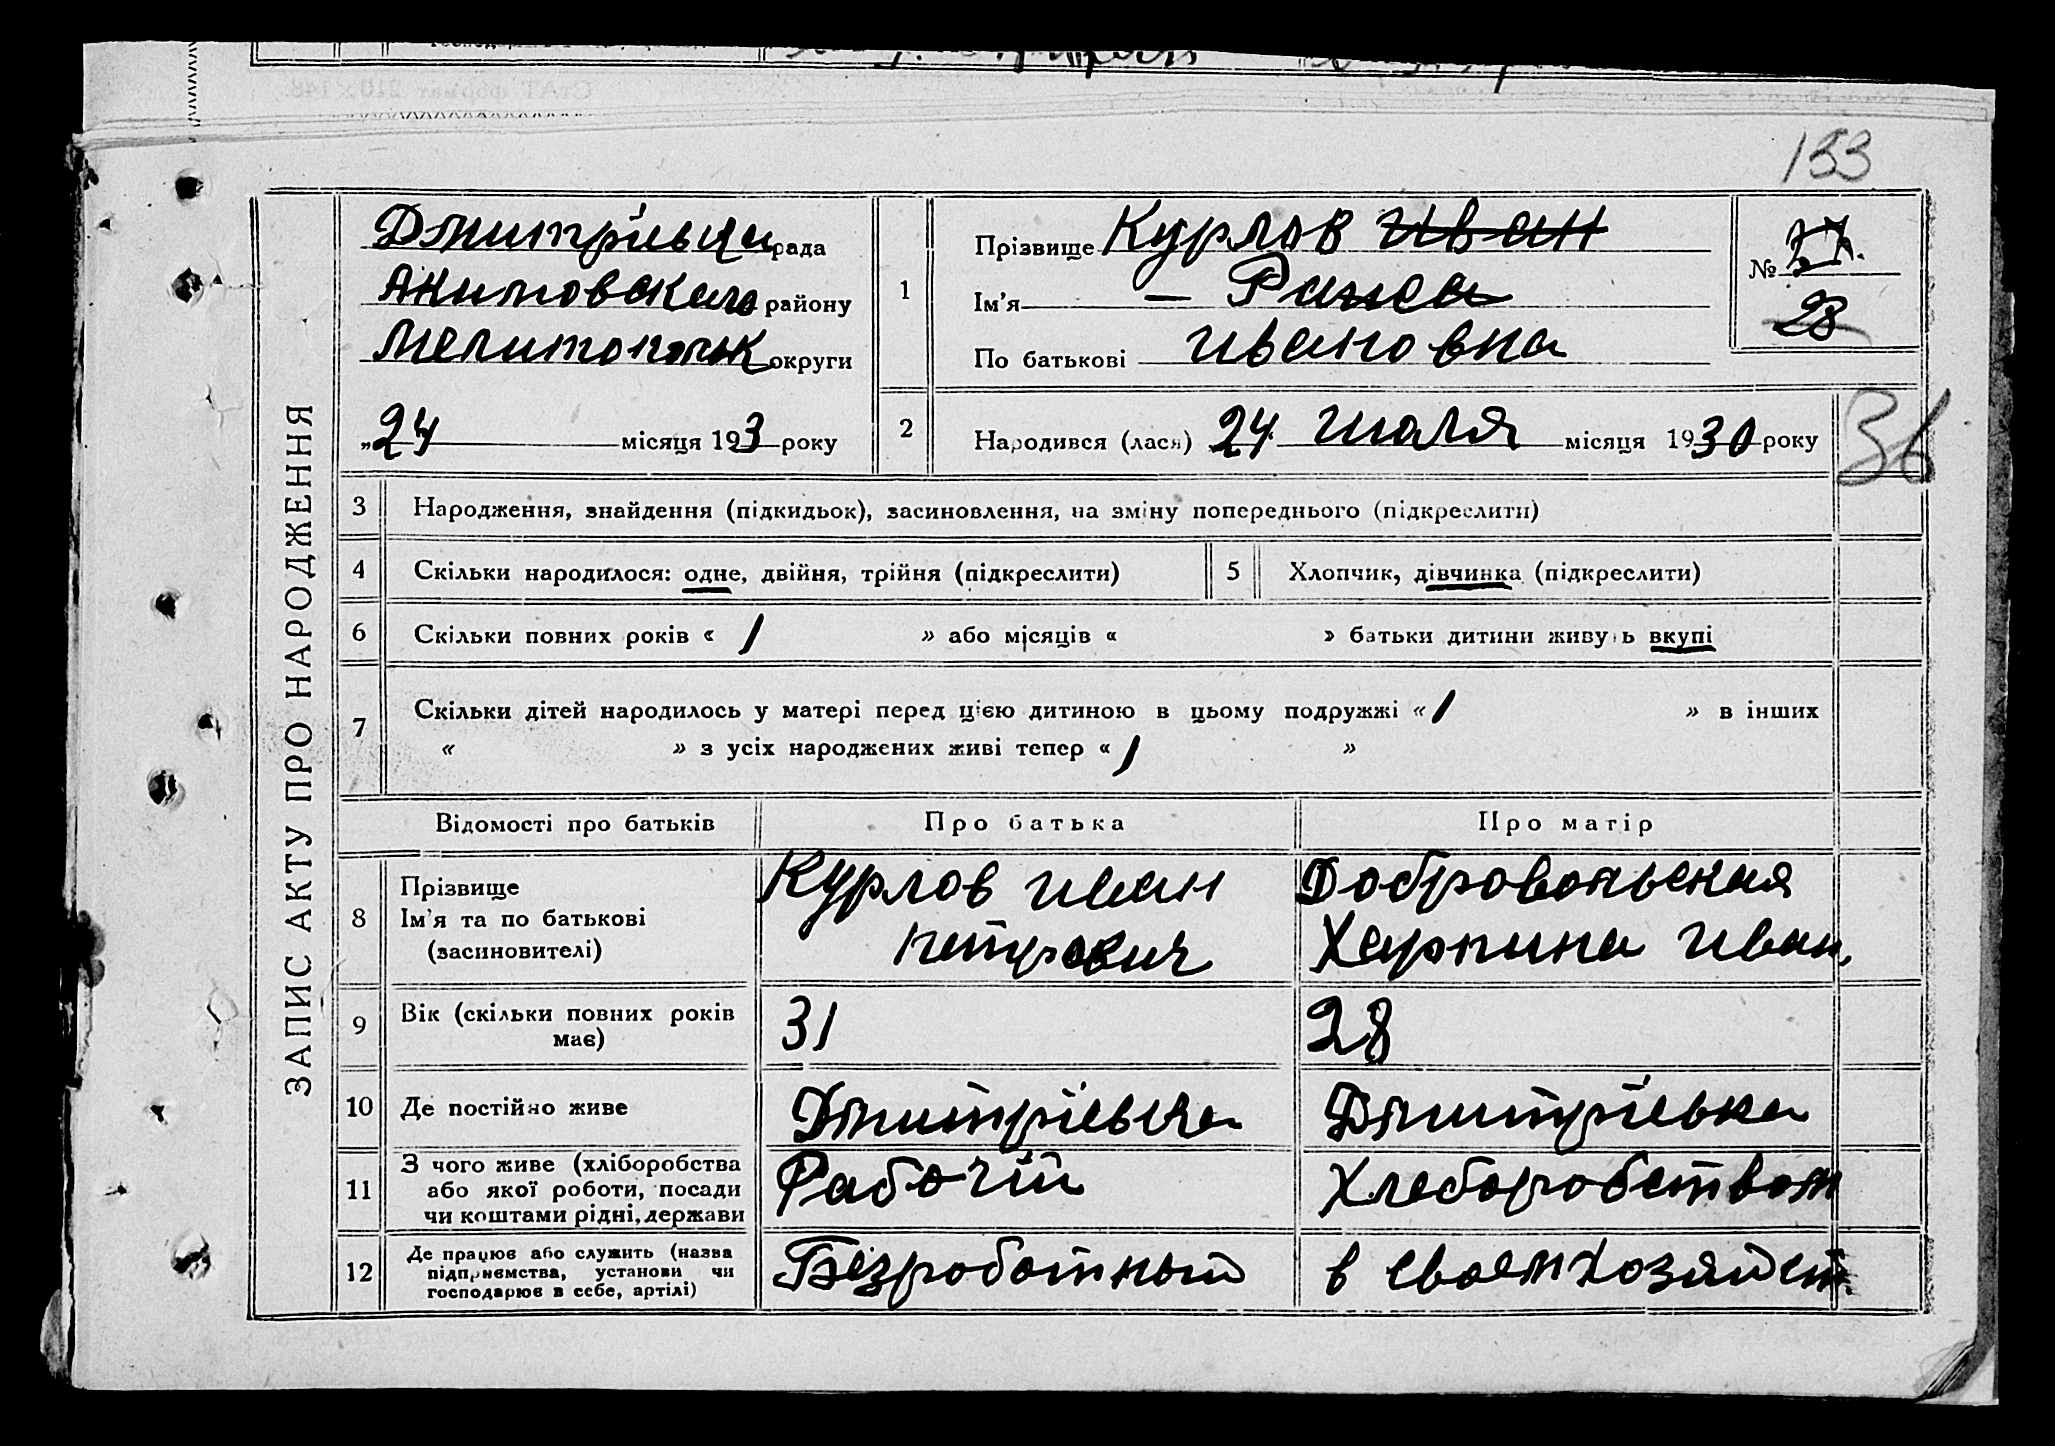 133
ЗАПИС АКТУ ПРО НАРОДЖЕННЯ
Дмитріевка рада
Акимовского району
Мелитопольк округи
„24 місяця 193 року
1
Прізвище Курлов Иван
Ім'я — Раиса
По батькові Ивановна
№ 27.
28
2
Народився (лася) 24 Июля місяця 1930 року
36
3 Народження, знайдення (підкидьок), засиновлення, на зміну попереднього (підкреслити)
4 Скільки народилося: одне, двійня, трійня (підкреслити)
5 Хлопчик, дівчинка (підкреслити)
6 Скільки повних років « 1 » або місяців « » батьки дитини живуть вкупі
7 Скільки дітей народилось у матері перед цією дитиною в цьому подружжі « 1 » в інших
« » з усіх народжених живі тепер « 1 »
Відомості про батьків Про батька Про матір
8
Прізвище
Ім'я та по батькові
(засиновителі)
Курлов Иван
Петрович
Добровольская
Харпина Иван.
9
Вік (скільки повних років
має)
31
28
10 Де постійно живе
Дмитріевка
Дмитріевка
11
З чого живе (хліборобства
або якої роботи, посади
чи коштами рідні, держави
Рабочій
Хлеборобством
12
Де працює або служить (назва
підприємства, установи чи
господарює в себе, артілі)
Безроботный
в своем хозяйст.